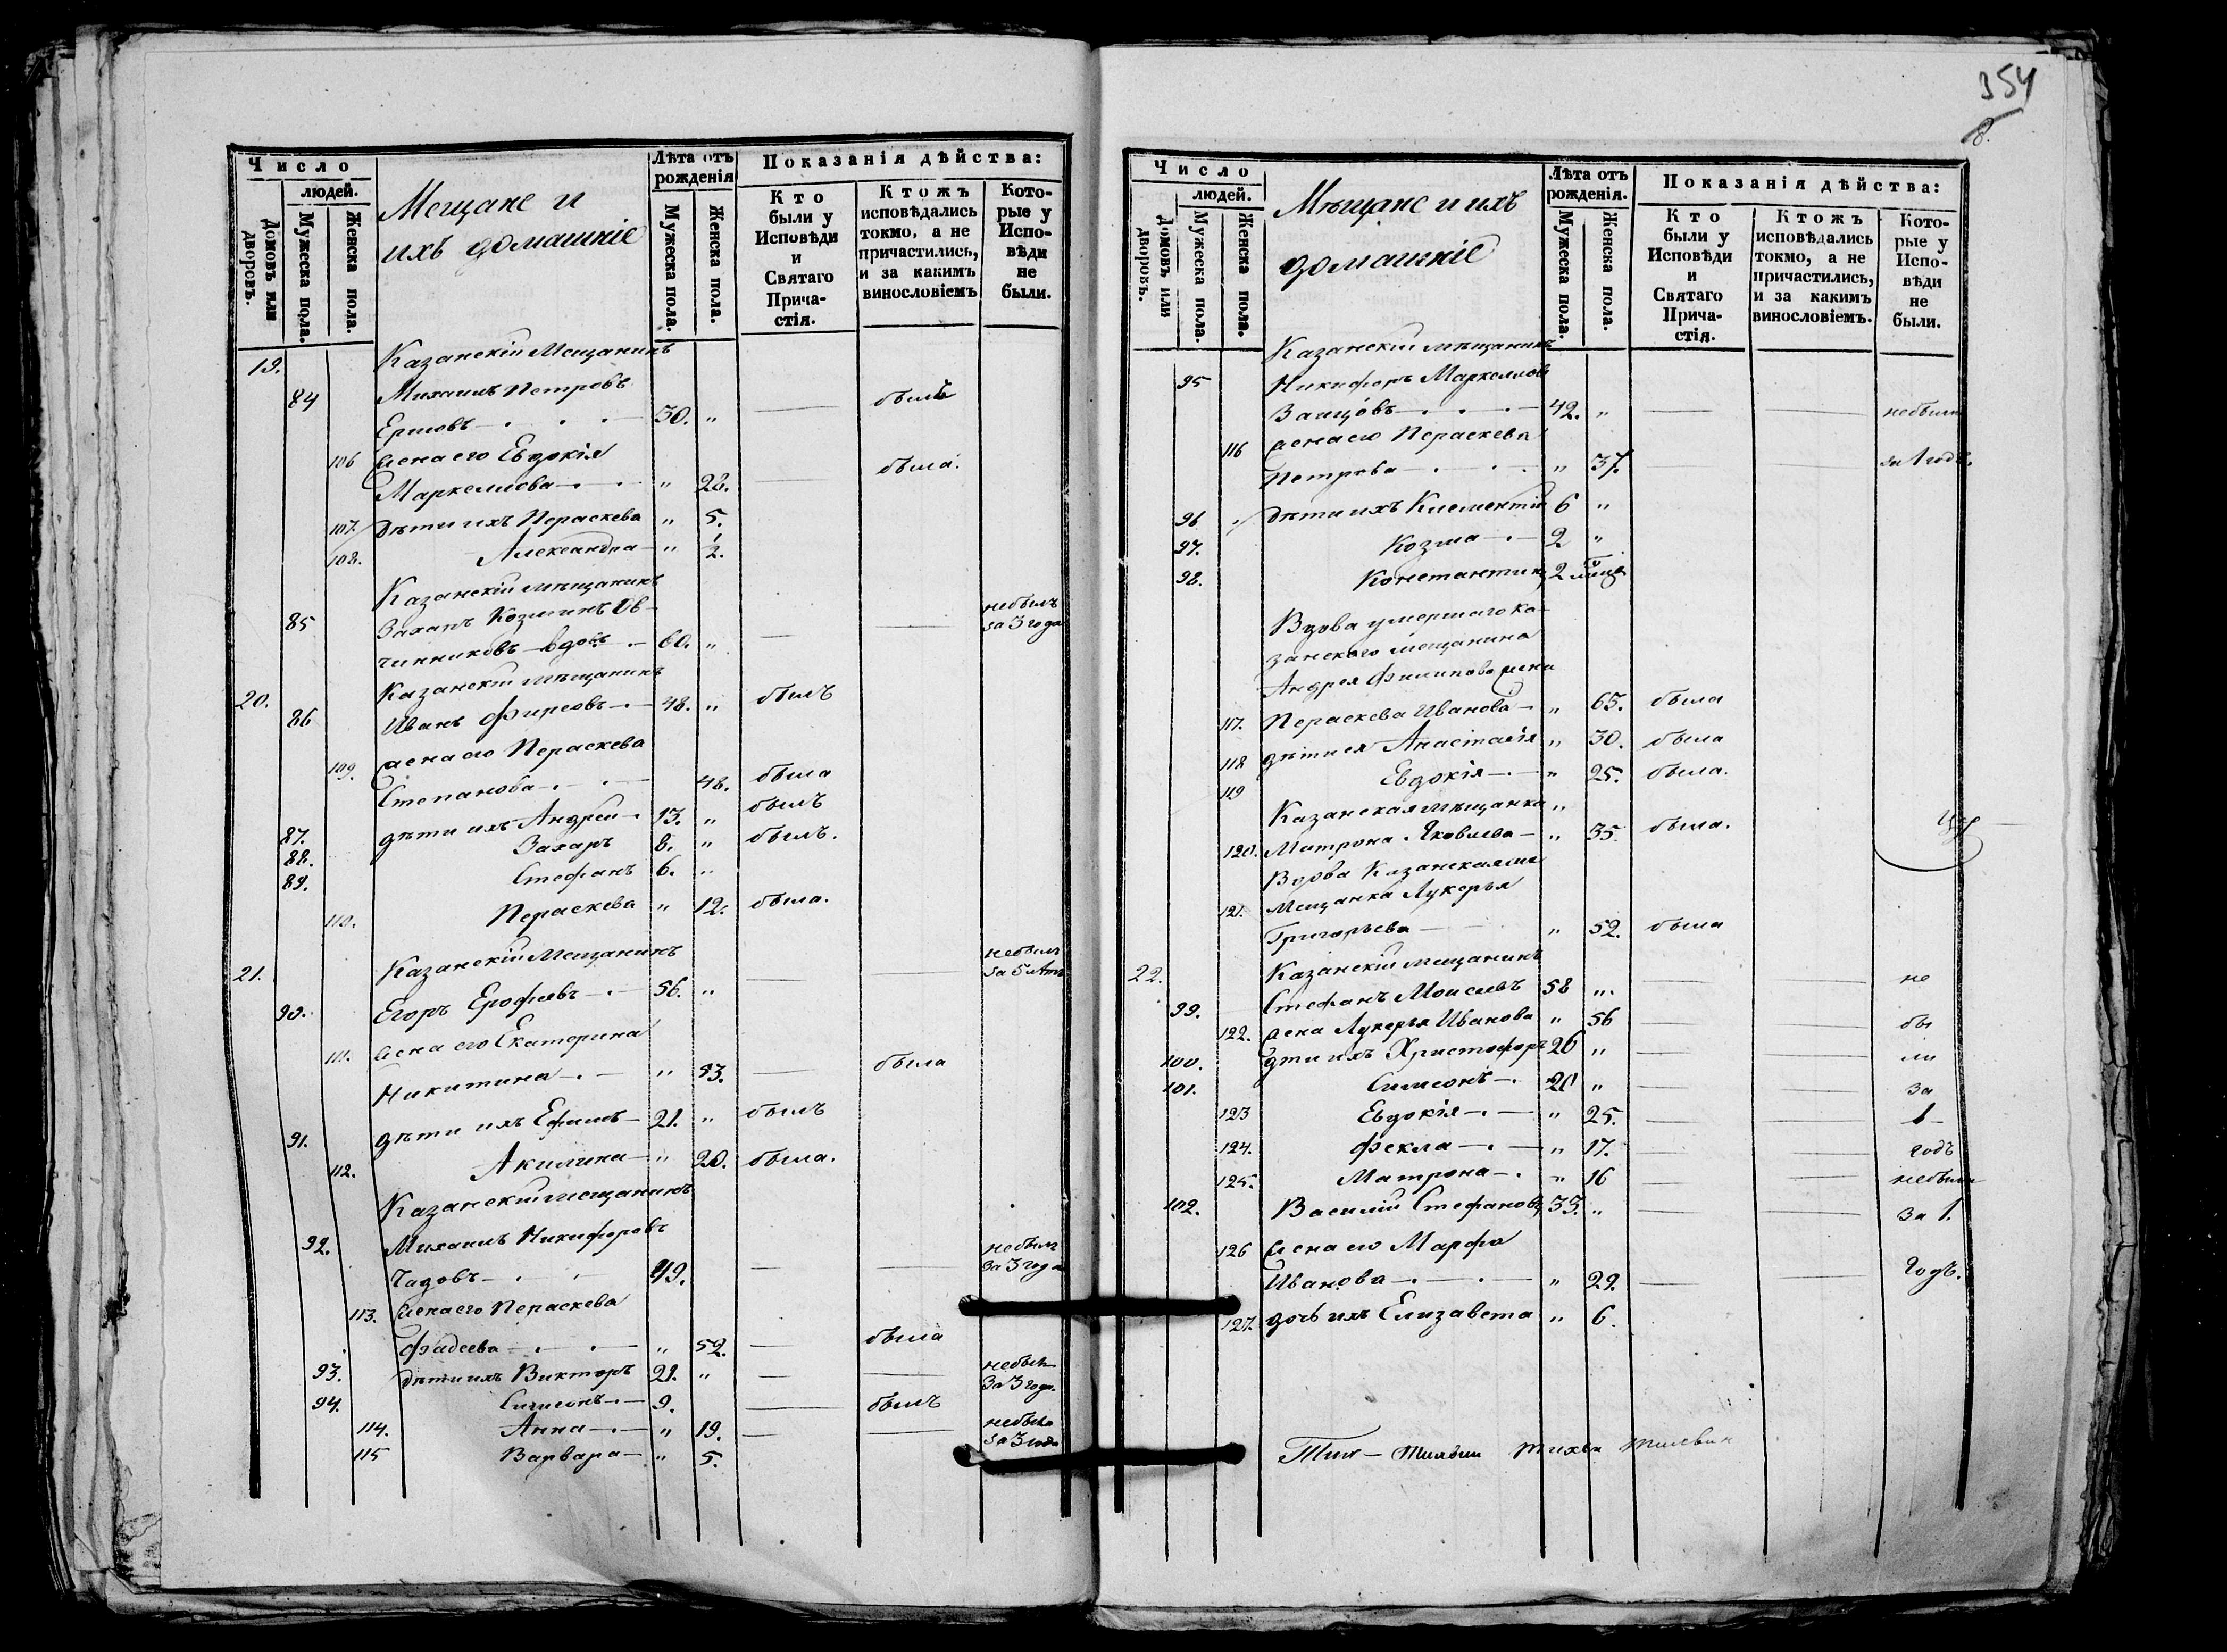 Число
людей.
Домовъ или дворовъ.
Мужеска пола.
Женска пола.
Мещане и
ихъ домашніе
Лѣта отъ рожденія
Мужеска пола.
Женска пола.
Показанія дѣйства:
Кто были у Исповѣди и Святаго Прича-стія.
Ктожъ исповѣдались токмо, а не причастились, и за какимъ винословіемъ
Кото-рые у Испо-вѣди не были.
19. Казанскій Мещанинъ
84 Михаилъ Петровъ
Ершовъ 30. „ былъ
106 Жена его Евдокія
Маркеллова „ 28. была.
107. Дѣти ихъ Параскева „ 5.
108. Александра „ 1/2.
Казанскій мѣщанинъ
85 Захаръ Козминъ Ов-
чинниковъ вдовъ 60. „ небылъ за 3 года
20. Казанскій мѣщанинъ
86 Иванъ Фирсовъ 48. „ былъ
109. жена его Параскева
Степанова 48. была
87. дѣти ихъ Андрей 13. „ былъ
88. Захаръ 8. „ былъ.
89. Стефанъ 6. „
110. Параскева „ 12. была.
21. Казанскій Мещанинъ
90. Егоръ Ерофѣевъ 56. „ небылъ за 5 лѣтъ
111. Жена его Екатерина
Никитина „ 53. была
91. дѣти ихъ Ефимъ 21. „ былъ
112. Акилина „ 20. была.
Казанскій мещанинъ
92. Михаилъ Никифоровъ
Чадовъ 49. небылъ за 3 года
113. Жена его Параскева
Фадеева „ 52. была
93. Дѣти ихъ Викторъ 21. „ небылъ за 3 года.
94. Симеонъ 9. былъ
114. Анна „ 19. небыла за 3 года
115 Варвара „ 5.
354
8.
Число
людей.
Домовъ или дворовъ.
Мужеска пола.
Женска пола.
Мѣщане и ихъ
домашніе
Лѣта отъ рожденія.
Мужеска пола.
Женска пола.
Показанія дѣйства:
Кто были у Исповѣди и Святаго Прича-стія.
Ктожъ исповѣдались токмо, а не причастились, и за какимъ винословіемъ.
Кото-рые у Испо-вѣди не были.
Казанскій мѣщанинъ
95 Никифоръ Маркелловъ
42. „ небыли
116 жена его Параскева
Петрова „ 37. за 1 годъ.
96 Дѣти ихъ Климентій 6 „
97. Козма 2 „
98. Константинъ 2
Вдова умершаго ка-
занскаго мещанина
Андрея Филипова жена
117. Параскева Иванова „ 65. была
118 дѣти ея Анастасія „ 30. была
119 Евдокія „ 25. была.
Казанская мѣщанка „
120. Матрона Яковлева „ 35 была.
Вдова Казанская ме
121. Мещанка Лукерья
Григорьева „ 52. была
22. Казанскій мещанинъ
99. Стефанъ Моисеевъ 58 „ не
122. жена Лукерья Иванова „ 56 бы
100. дѣти ихъ Христофоръ 26 „ ли
101. Симеонъ 20 „ за
123 Евдокія „ 25. 1
124. Фекла „ 17. годъ
125. Матрона „ 16 небыли
102. Василій Стефановъ 33. „ за 1.
126 Жена его Марфа
Иванова „ 29. годъ.
127. дочь ихъ Елизавета „ 6.